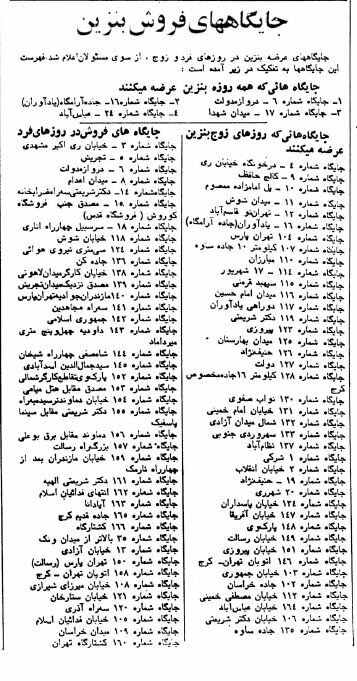 جایگاههای فروش بنزین
جایگاههای عرضه بنزین در روزهای فرد و زوج ، از سوی مسئولان اعلام شد. فهرست
این جایگاهها به تفکیک در زیر آمده است :
جایگاه هائی که همه روزه بنزین عرضه میکنند
۱- جایگاه شماره ۶ - دروازه دولت
۲- جایگاه شماره ۱۶- جاده آرامگاه (یادآوران)
۳- جایگاه شماره ۱۷ - میدان شهدا
۴- جایگاه شماره ۲۴ - عباس‌آباد
جایگاه‌هائی که روزهای زوج بنزین
عرضه میکنند
جایگاه شماره ۴ - درخونگاه خیابان ری
جایگاه شماره ۹ - کالج حافظ
جایگاه شماره ۱۰ - پل امامزاده معصوم
جایگاه شماره ۱۱ - میدان شوش
جایگاه شماره ۱۲ - تهران‌نو قاسم‌آباد
جایگاه شماره ۱۶ - یادآوران (جاده آرامگاه)
جایگاه شماره ۱۰۴ تهران پارس
جایگاه شماره ۱۰۷ کیلومتر ۱۰ جاده ساوه
جایگاه شماره ۱۱۰ مبارزان
جایگاه شماره ۱۱۴ - ۱۷ شهریور
جایگاه شماره ۱۱۵ سپهبد قرنی
جایگاه شماره ۱۱۶ میدان امام حسین
جایگاه شماره ۱۱۷ دوراهی یادآوران
جایگاه شماره ۱۱۹ دکتر شریعتی
جایگاه شماره ۱۲۳ پیروزی
جایگاه شماره ۱۲۵ میدان بهارستان
جایگاه شماره ۱۲۶ حنیف‌نژاد
جایگاه شماره ۱۲۷ دولت
جایگاه شماره ۱۲۸ کیلومتر ۱۶ جاده مخصوص
کرج
جایگاه شماره ۱۳۰ نواب صفوی
جایگاه شماره ۱۳۱ خیابان امام خمینی
جایگاه شماره ۱۳۲ شمال میدان آزادی
جایگاه شماره ۱۳۳ سهروردی جنوبی
جایگاه شماره ۱۳۷ نظام‌آباد
جایگاه شماره ۱ شرکتی
جایگاه شماره ۲ خیابان انقلاب
جایگاه شماره ۱۹ - حنیف‌نژاد
جایگاه شماره ۲۰ شهرری
جایگاه شماره ۱۳۴ خیابان پاسداران
جایگاه شماره ۱۴۷ خیابان آفریقا
جایگاه شماره ۱۴۸ پارک‌وی
جایگاه شماره ۱۴۹ خیابان رسالت
جایگاه شماره ۱۵۱ خیابان پیروزی
جایگاه شماره ۱۴۶ اتوبان تهران- کرج
جایگاه شماره ۱۰۳ خیابان جمهوری
جایگاه شماره ۱۰۲ جاده خراسان
جایگاه شماره ۱۱۲ خیابان مصطفی خمینی
جایگاه شماره ۱۶۴ خیابان عباس‌آباد
جایگاه شماره ۱۰۶ خیابان دکتر شریعتی
جایگاه شماره ۱۳۵ جاده ساوه
جایگاه های فروش در روزهای فرد
جایگاه شماره ۳ - خیابان ری اکبر مشهدی
جایگاه شماره ۵ - تجریش
جایگاه شماره ۶ - دروازه دولت
جایگاه شماره ۸ - میدان اعدام
جایگاه شماره ۱۴- دکتر شریعتی سه راه ضرابخانه
جایگاه شماره ۱۵- مصدق جنب فروشگاه
کوروش ( فروشگاه قدس)
جایگاه شماره ۱۸ - سرسبیل چهارراه اناری
جایگاه شماره ۱۱۸ خیابان شوش
جایگاه شماره ۱۲۴ سی‌متری نیروی هوائی
جایگاه شماره ۱۳۶ جاده کن
جایگاه شماره ۱۳۸ خیابان کارگر میدان لاهوتی
جایگاه شماره ۱۳۹ مصدق نزدیک میدان تجریش
جایگاه شماره ۱۴۰ مازندران جوادیه تهران‌پارس
جایگاه شماره ۱۴۱ سه‌راه مجاهدین
جایگاه شماره ۱۴۲ جمهوری اسلامی
جایگاه شماره ۱۴۳ داودیه چهل‌وپنج متری
میرداماد
جایگاه شماره ۱۴۴ شامصفی چهارراه شیخان
جایگاه شماره ۱۴۵ سیدجمال‌الدین اسدآبادی
جایگاه شماره ۱۵۲ پارک‌وی تقاطع کارگر شمالی
جایگاه شماره ۱۵۳ مصدق مقابل هتل میامی
جایگاه شماره ۱۵۴ خیابان دماوند سر سه‌راه
جایگاه شماره ۱۵۵ دکتر شریعتی مقابل سینما
پاسفیک
جایگاه شماره ۱۵۶ دماوند مقابل برق بوعلی
جایگاه شماره ۱۵۷ بزرگراه رسالت
جایگاه شماره ۱۵۹ خیابان مازندران بعد از
چهارراه نارمک
جایگاه شماره ۱۶۱ دکتر شریعتی الهیه
جایگاه شماره ۱۶۲ انتهای فدائیان اسلام
جایگاه شماره ۱۶۳ آپادانا
جایگاه شماره ۱۶۵ جاده قدیم کرج
جایگاه شماره ۱۶۶ کشتارگاه
جایگاه شماره ۳۵ بالاتر از میدان ونک
جایگاه شماره ۱۳ خیابان آزادی
جایگاه شماره ۱۵۰ تهران پارس (رسالت)
جایگاه شماره ۱۵۸ اتوبان تهران - کرج
جایگاه شماره ۱۰۸ خیابان میرزای شیرازی
جایگاه شماره ۱۲۱ خیابان ستارخان
جایگاه شماره ۱۲۰ سه‌راه آذری
جایگاه شماره ۱۰۵ خیابان فدائیان اسلام
جایگاه شماره ۱۰۹ میدان خراسان
جایگاه شماره ۱۶۰ کشتارگاه تهران